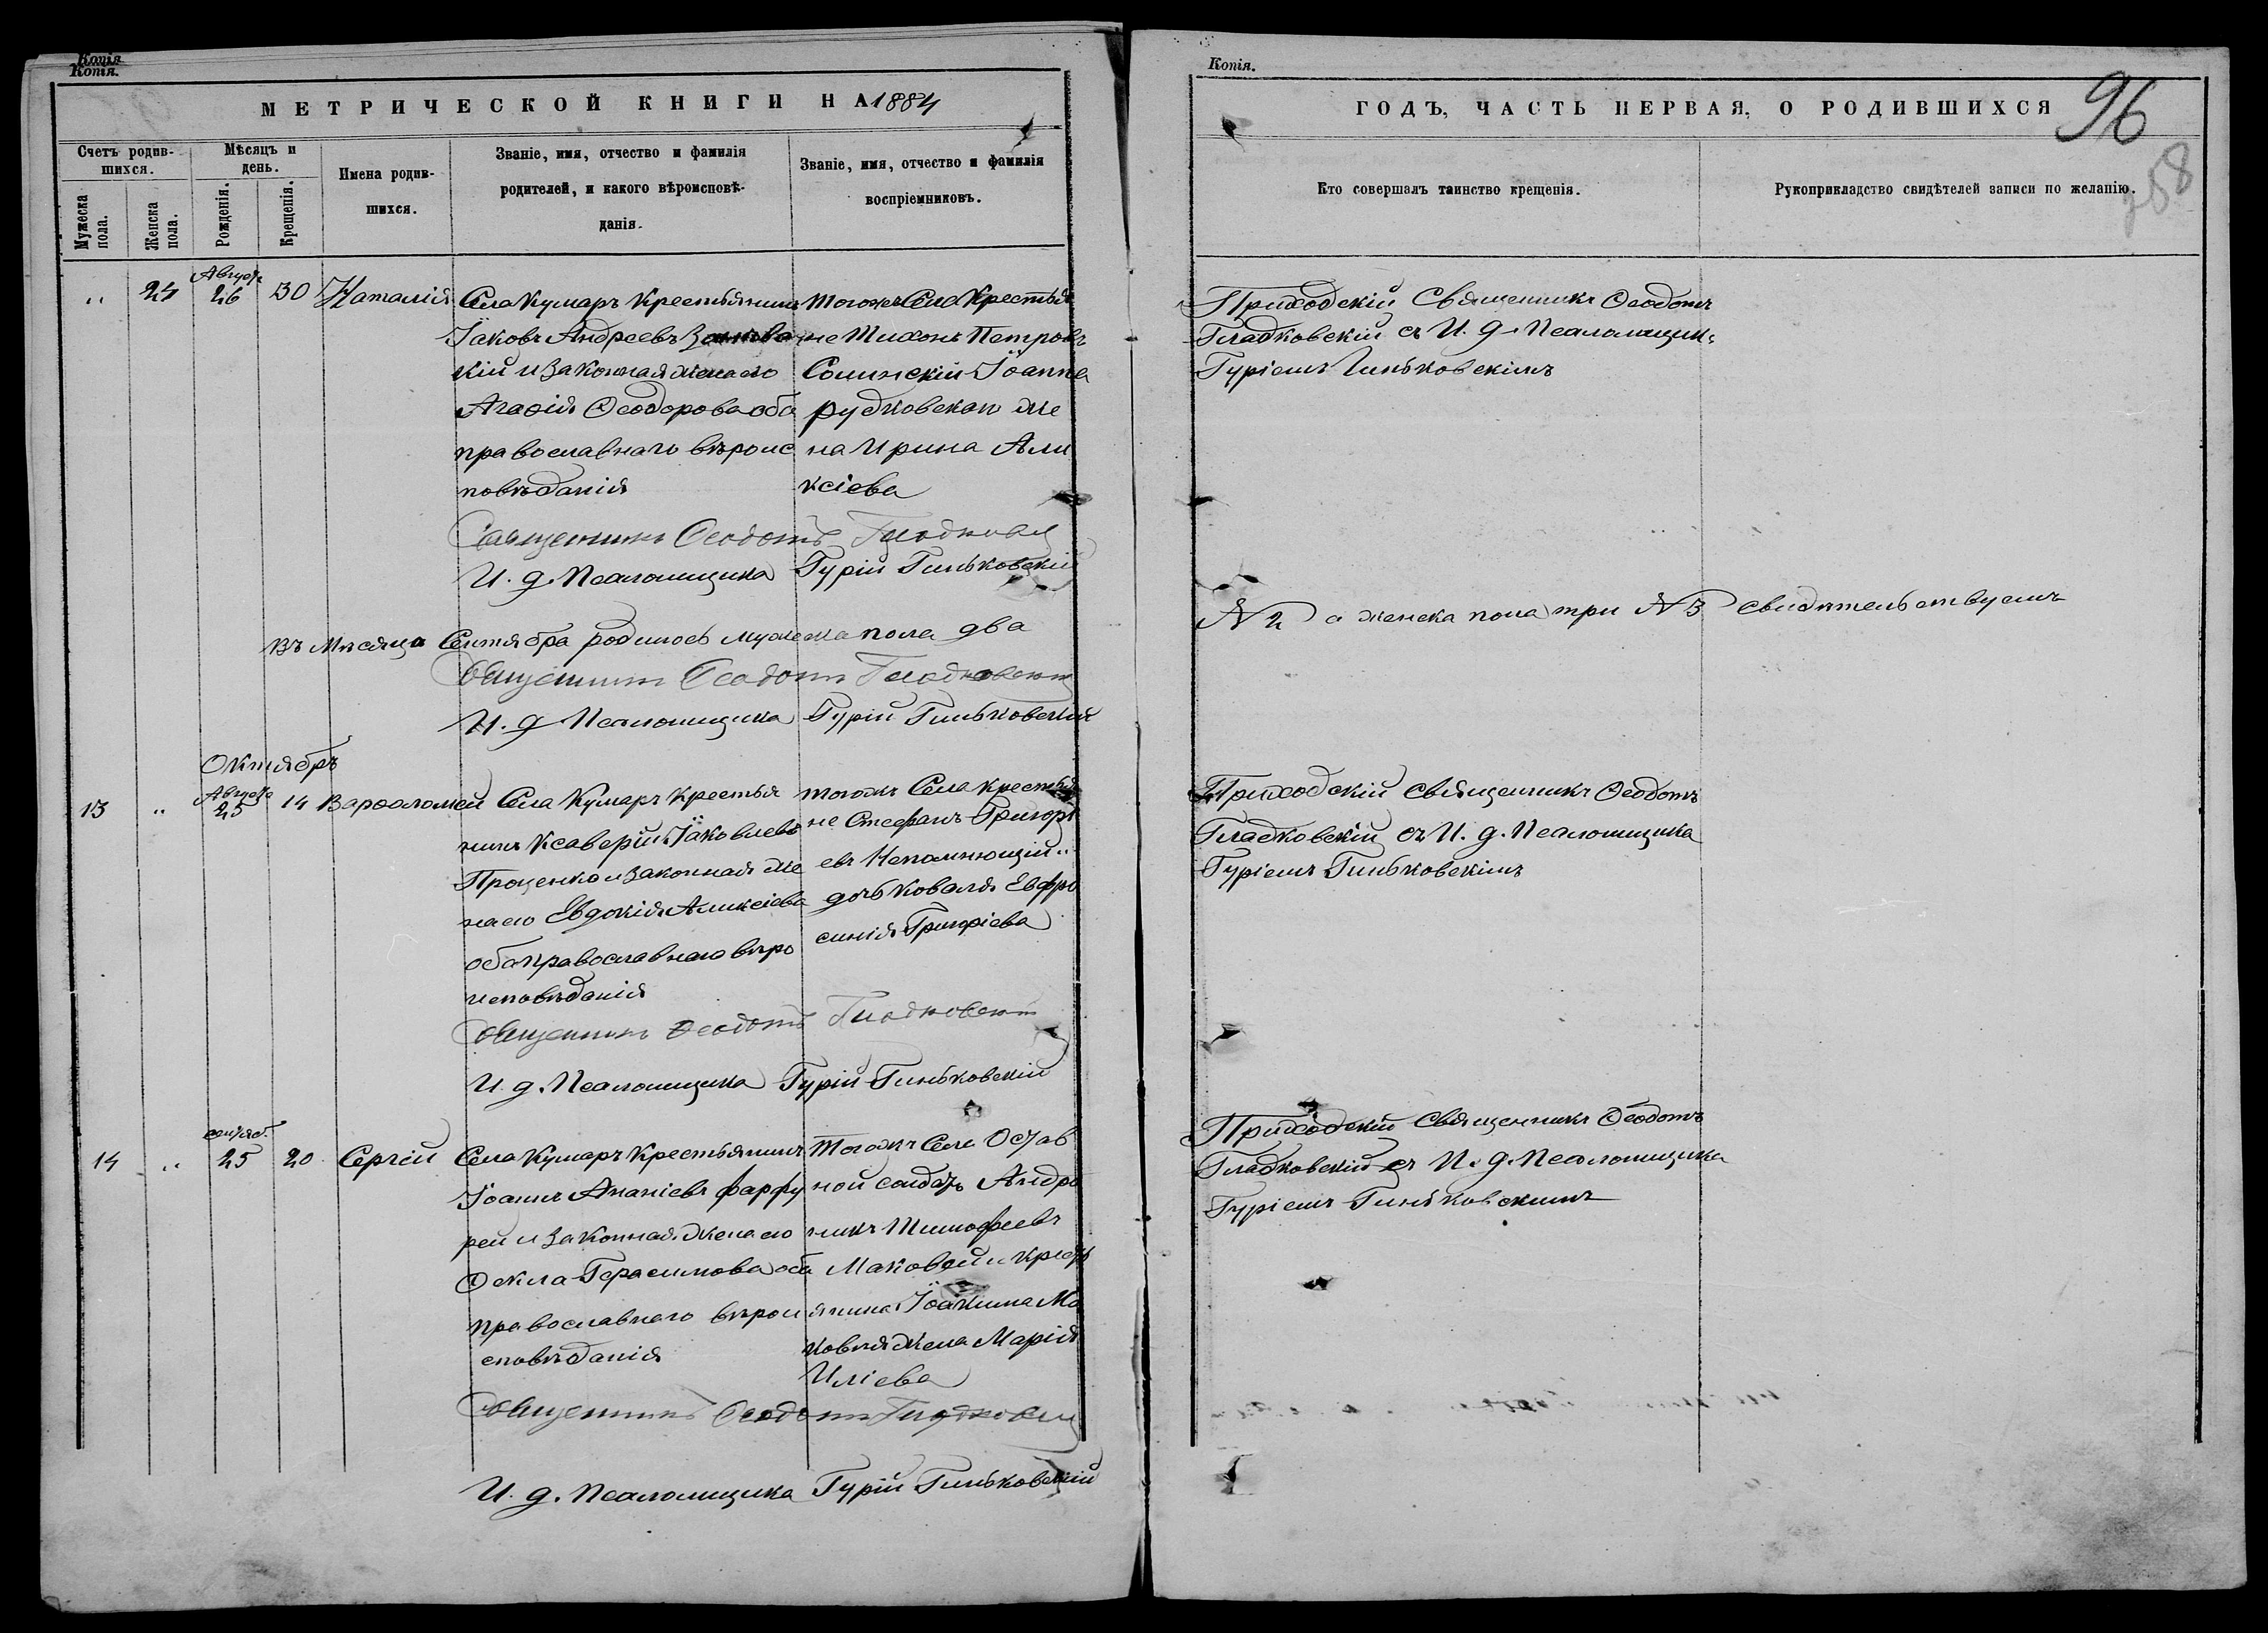 Копія
Копія.
МЕТРИЧЕСКОЙ КНИГИ НА 1884
Счетъ родив-
шихся.
Мѣсяцъ и
день.
Имена родив-
шихся.
Званіе, имя, отчество и фамилія
родителей, и какого вѣроисповѣ-
данія.
Званіе, имя, отчество и фамилія
воспріемниковъ.
Мужеска
пола.
Женска
пола.
Рожденія.
Крещенія.
„ 24 Августа 26 30 Наталія
Села Кумаръ Крестьянинъ
Іаковъ Андреевъ
кій и законная жена его
Агафія Ѳеодорова оба
православнаго вѣроис
повѣданія
Тогоже Села Крестья
не Тихонъ Петровъ
Сошнскій Іоанна
рудковскаго же
на Ирина Але
ксіева
Священникъ Ѳеодотъ Гладковскій
И. д. Псаломщика Гурій Гиньковскій
Въ Мѣсяцѣ Сентябрѣ родилось мужеска пола два
Священникъ Ѳеодотъ Гладковскій
И. д Псаломщика Гурій Гиньковскій
Октябрь
13 „ Августа 25 14 Варѳоломей
Села Кумаръ Крестья
нинъ Ксаверій Іаковлевъ
Проценко и законная же
на его Евдокія Алексіева
оба православнаго вѣро
исповѣданія
тогожъ Села крестья
не Стефанъ Григорі
евъ Непомнющій „
дочь Коваля Евфро
синія Григоріева
Священникъ Ѳеодотъ Гладковскій
И. д. Псаломщика Гурій Гиньковскій
14 „ сентяб. 25 20 Сергій
Села Кумаръ Крестьянинъ
Іоаннъ Ананіевъ фарфу
рей и законная жена его
Ѳекла Герасимова оба
православнаго вѣрои
сповѣданія
Тогожъ Села Остав
ной солдатъ Андро
никъ Тимофеевъ
Маковей и крест
янина Іоакима Ма
ковѣя жена Марія
Иліева
Священникъ Ѳеодотъ Гладковскій
И. д. Псаломщика Гурій Гиньковскій
Копія.
ГОДЪ, ЧАСТЬ ПЕРВАЯ, О РОДИВШИХСЯ
96
Кто совершалъ таинство крещенія.
Рукоприкладство свидѣтелей записи по желанію.
Приходскій Священникъ Ѳеодотъ
Гладковскій съ И. д. Псаломщик.
Гуріемъ Гиньковскімъ
№ 2 а женска пола три № 3 свидѣтельствуемъ
Приходскій Священникъ Ѳеодотъ
Гладковскій съ И. д. Псаломщика
Гуріемъ Гиньковскімъ
Приходскій Священникъ Ѳеодотъ
Гладковскій съ И. д. Псаломщика
Гуріемъ Гиньковскимъ